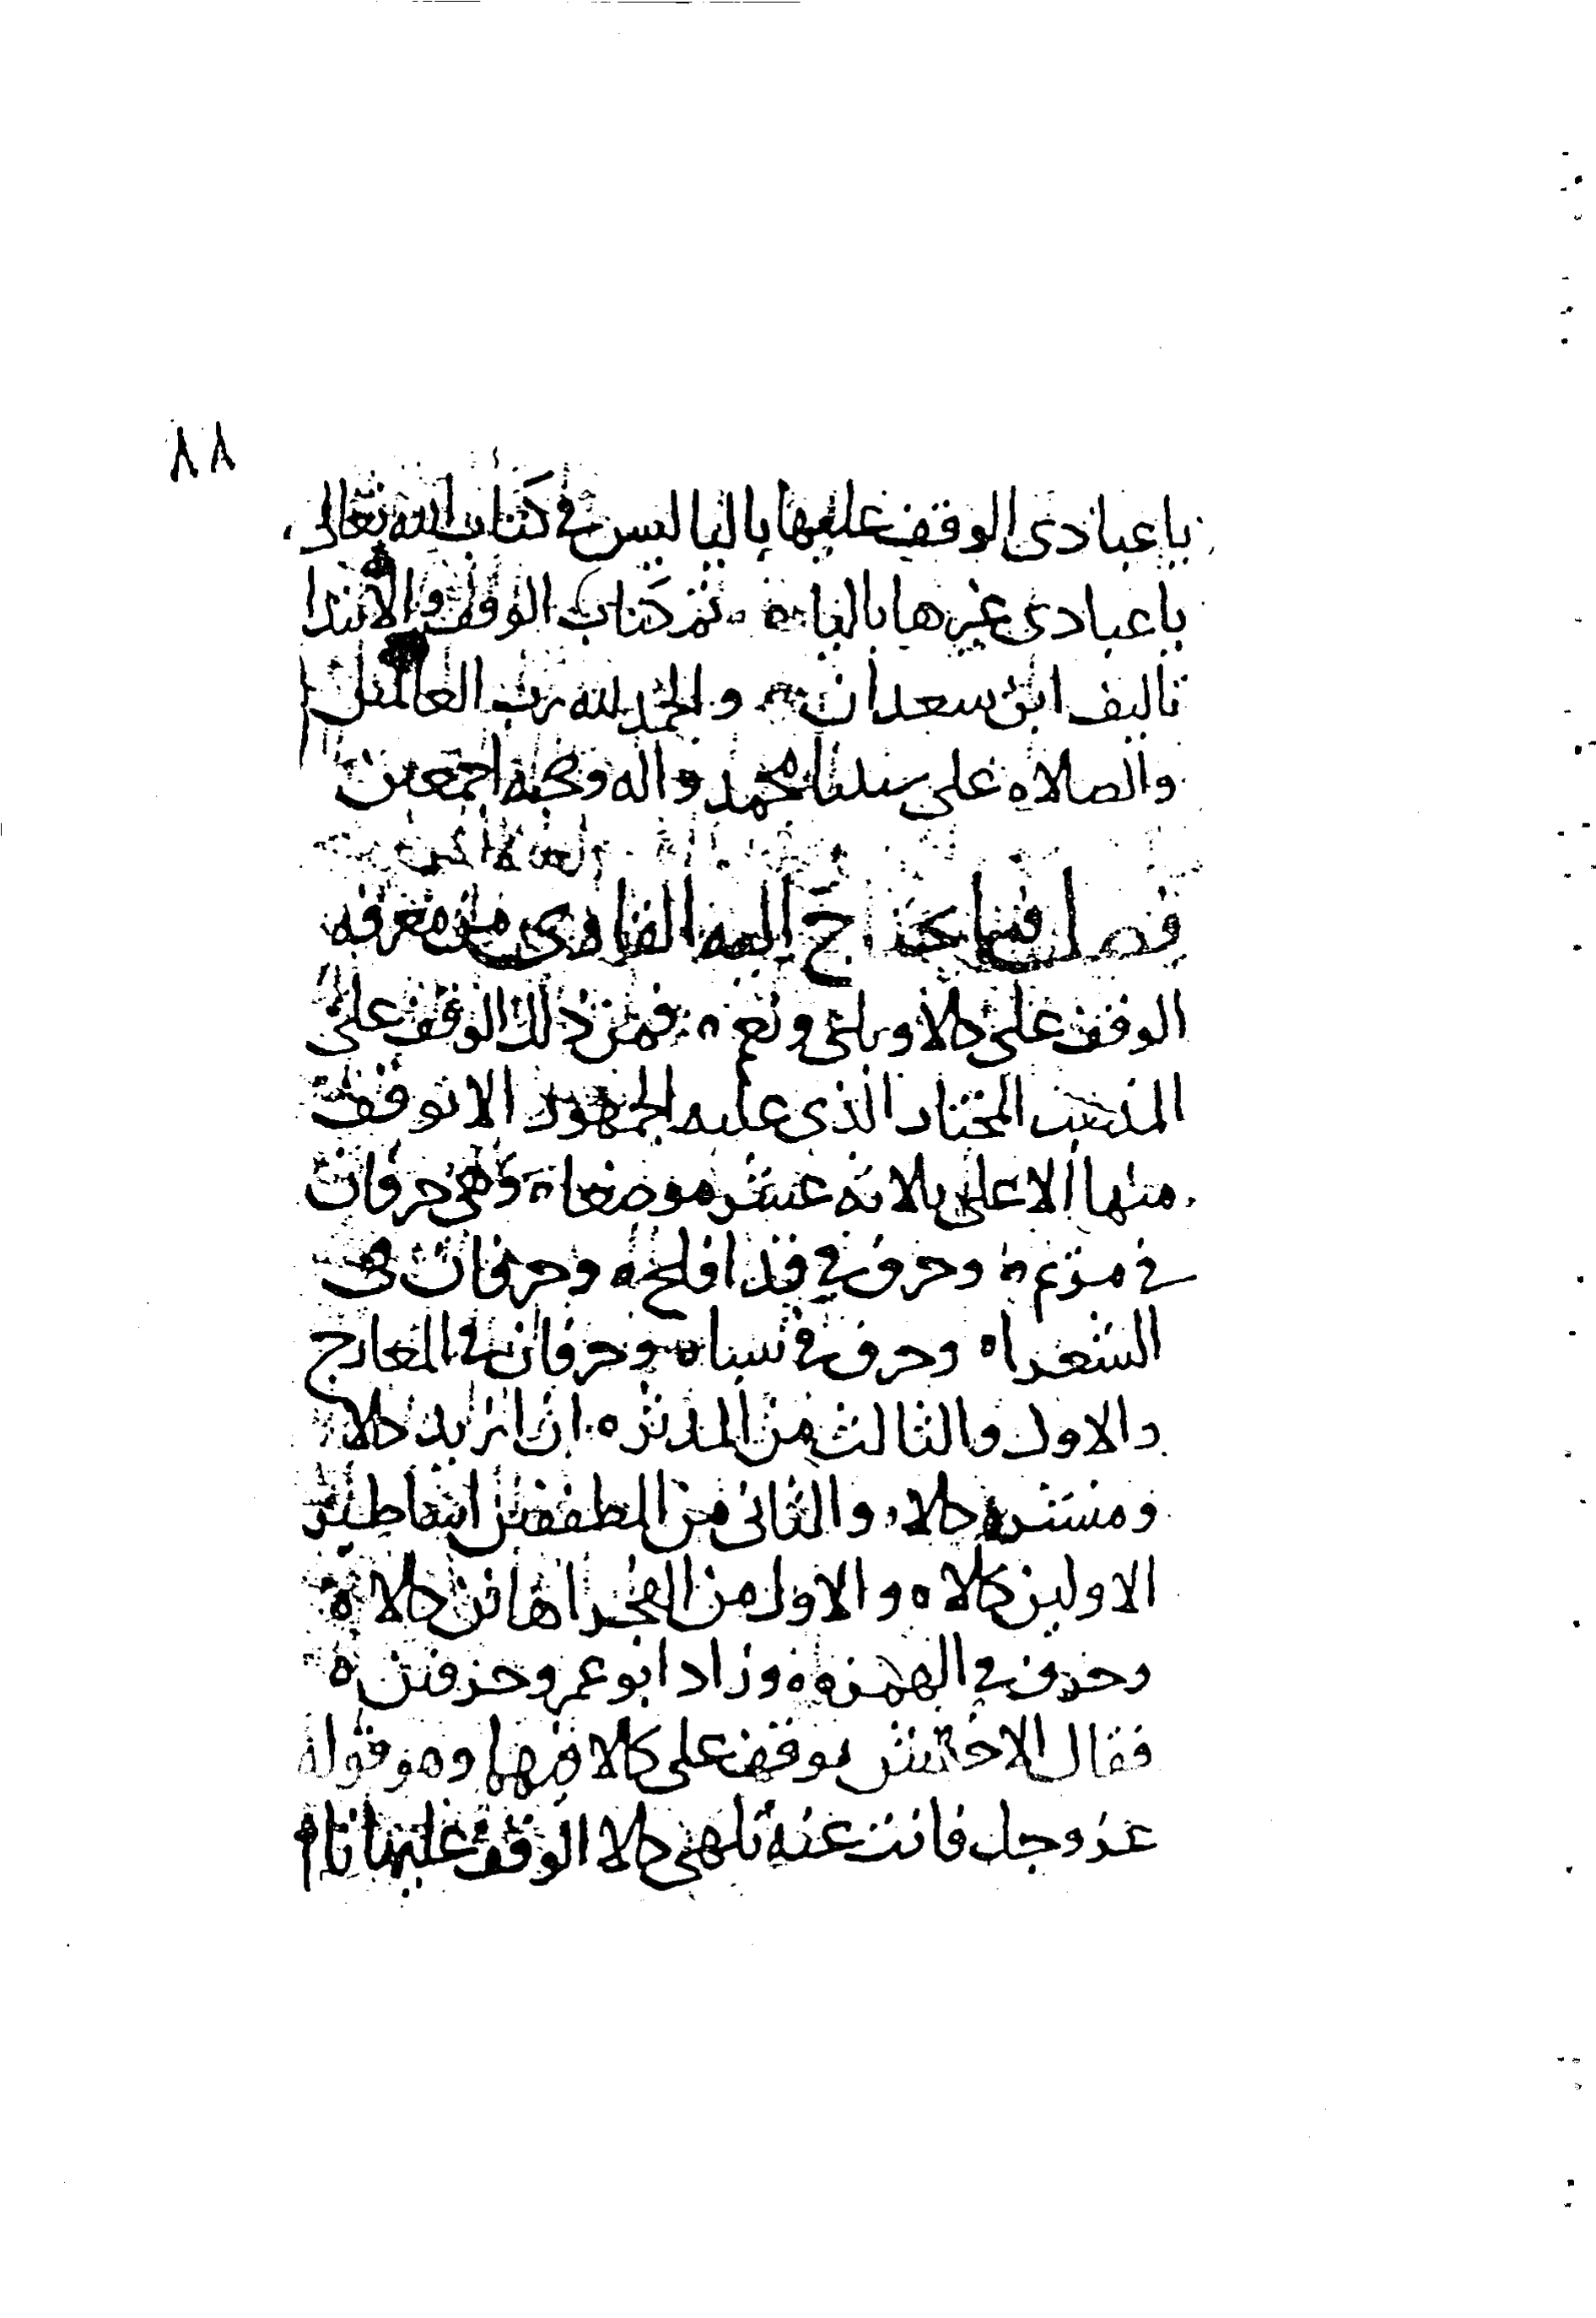 ٨٨
يا عبادى الوقف عليها باليا ليس في كتاب الله تعالى
يا عبادى غيرها باليا ه تم كتاب الوقف والابتدا
تاليف ابن سعدان ه والحمد لله رب العالمين
والصلاه على سيدنا محمد واله وصحبه اجمعين
فصل فيما يحتاج اليه القارى من معرفه
الوقف على كلا وبلى ونعم ه فمن ذلك الوقف على
المذهب المختار الذى عليه الجمهور الا توقف
منها الا على ثلاثه عشر موضعا ه وهي حرفان
في مريم ه وحرف في قد افلح ه وحرفان في
الشعرا ه وحرف في سبا ه وحرفان في المعارج
والاول والثالث من المدثر ه ان ازيد كلا
ومنشره كلا ه والثانى من المطففين اساطير
الاولين كلا ه والاول من الفجر اهانن كلا ه
وحرف في الهمزه ه وزاد ابو عمرو حرفين ه
فقال الاخفش يوقف على كلا فيهما وهو قوله
عز وجل فانت عنه تلهى كلا الوقف عليها تام